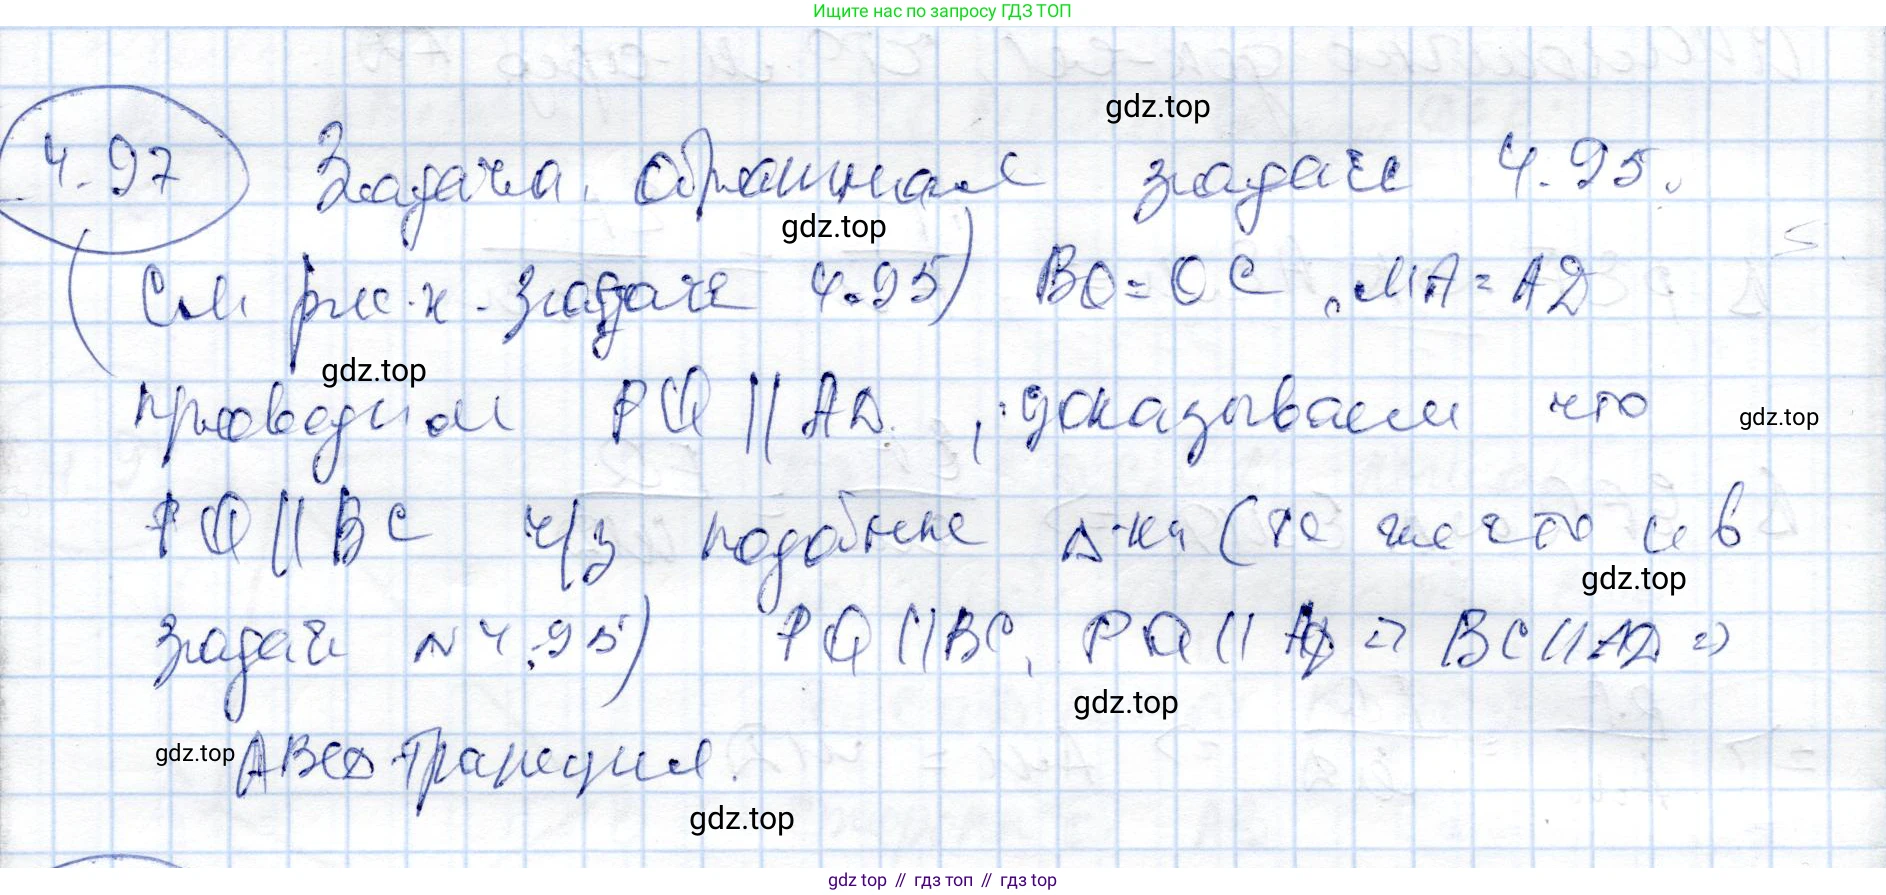 Ищите нас по запросу ГДЗ ТОП
gdz.top
4.97 Задача, обратная задаче 4.95.
gdz.top
(См рис. к задаче 4.95) BO = OC, MA = AD
gdz.top
проводим PQ || AD, доказываем что
gdz.top
PQ || BC ч/з подобные Δ-ки (то же что и в
gdz.top
задаче №4.95) PQ || BC, PQ || AD => BC || AD =>
gdz.top
gdz.top
ABCD трапеция.
gdz.top
gdz top // гдз топ // гдз top